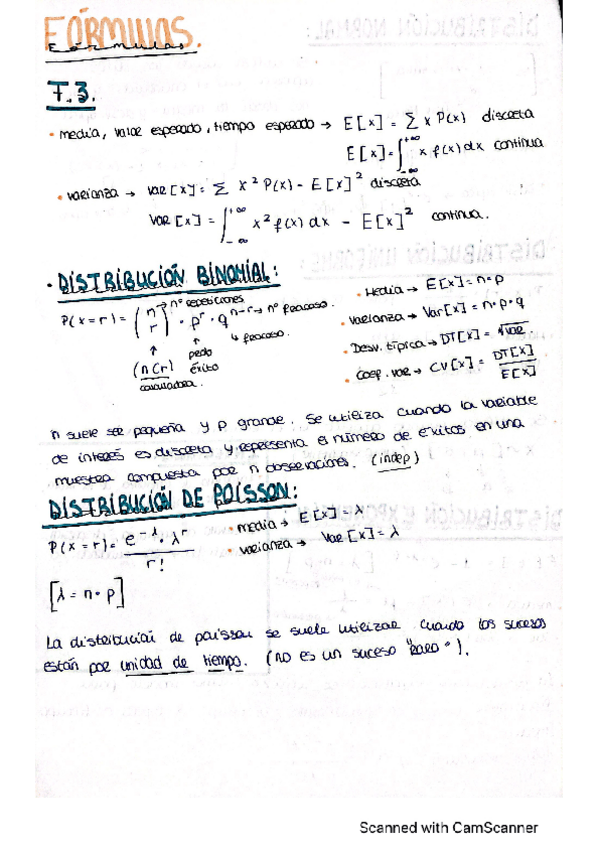 FÓRMULAS.
Fórmulas
T.3.
• media, valor esperado, tiempo esperado → E[x] = Σ x P(x) discreta
E[x] = ∫_{-∞}^{+∞} x f(x) dx continua
• varianza → Var[x] = Σ x² P(x) - E[x]² discreta
Var[x] = ∫_{-∞}^{+∞} x² f(x) dx - E[x]² continua.
• DISTRIBUCIÓN BINOMIAL:
P(x=r) = (n r) · p^r · q^{n-r} → nº fracaso.
→ nº repeticiones
↳ fracaso.
↑ ↑
(nCr) éxito
calculadora.
• Media → E[x] = n·p
• Varianza → Var[x] = n·p·q
• Desv. típica → DT[x] = √Var
• Coef. var → CV[x] = DT[x] / E[x]
n suele ser pequeña y p grande. Se utiliza cuando la variable
de interés es discreta y representa el número de éxitos en una
muestra compuesta por n observaciones. (indep)
DISTRIBUCIÓN DE POISSON:
P(x=r) = e^{-λ} · λ^r / r!
• media → E[x] = λ
• varianza → Var[x] = λ
[λ = n·p]
La distribución de poisson se suele utilizar cuando los sucesos
están por unidad de tiempo. (no es un suceso "raro").
Scanned with CamScanner